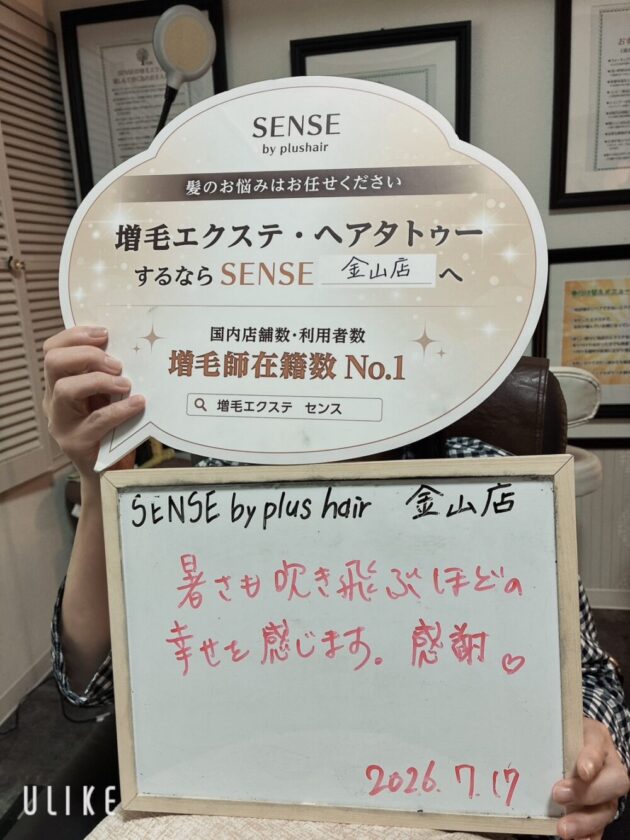 SENSE
by plushair
髪のお悩みはお任せください
増毛エクステ・ヘアタトゥー
するなら SENSE 金山店 へ
国内店舗数・利用者数
増毛師在籍数 No.1
増毛エクステ センス
SENSE by plus hair 金山店
暑さも吹き飛ぶほどの
幸せを感じます。感謝♡
2026.7.17
ULIKE